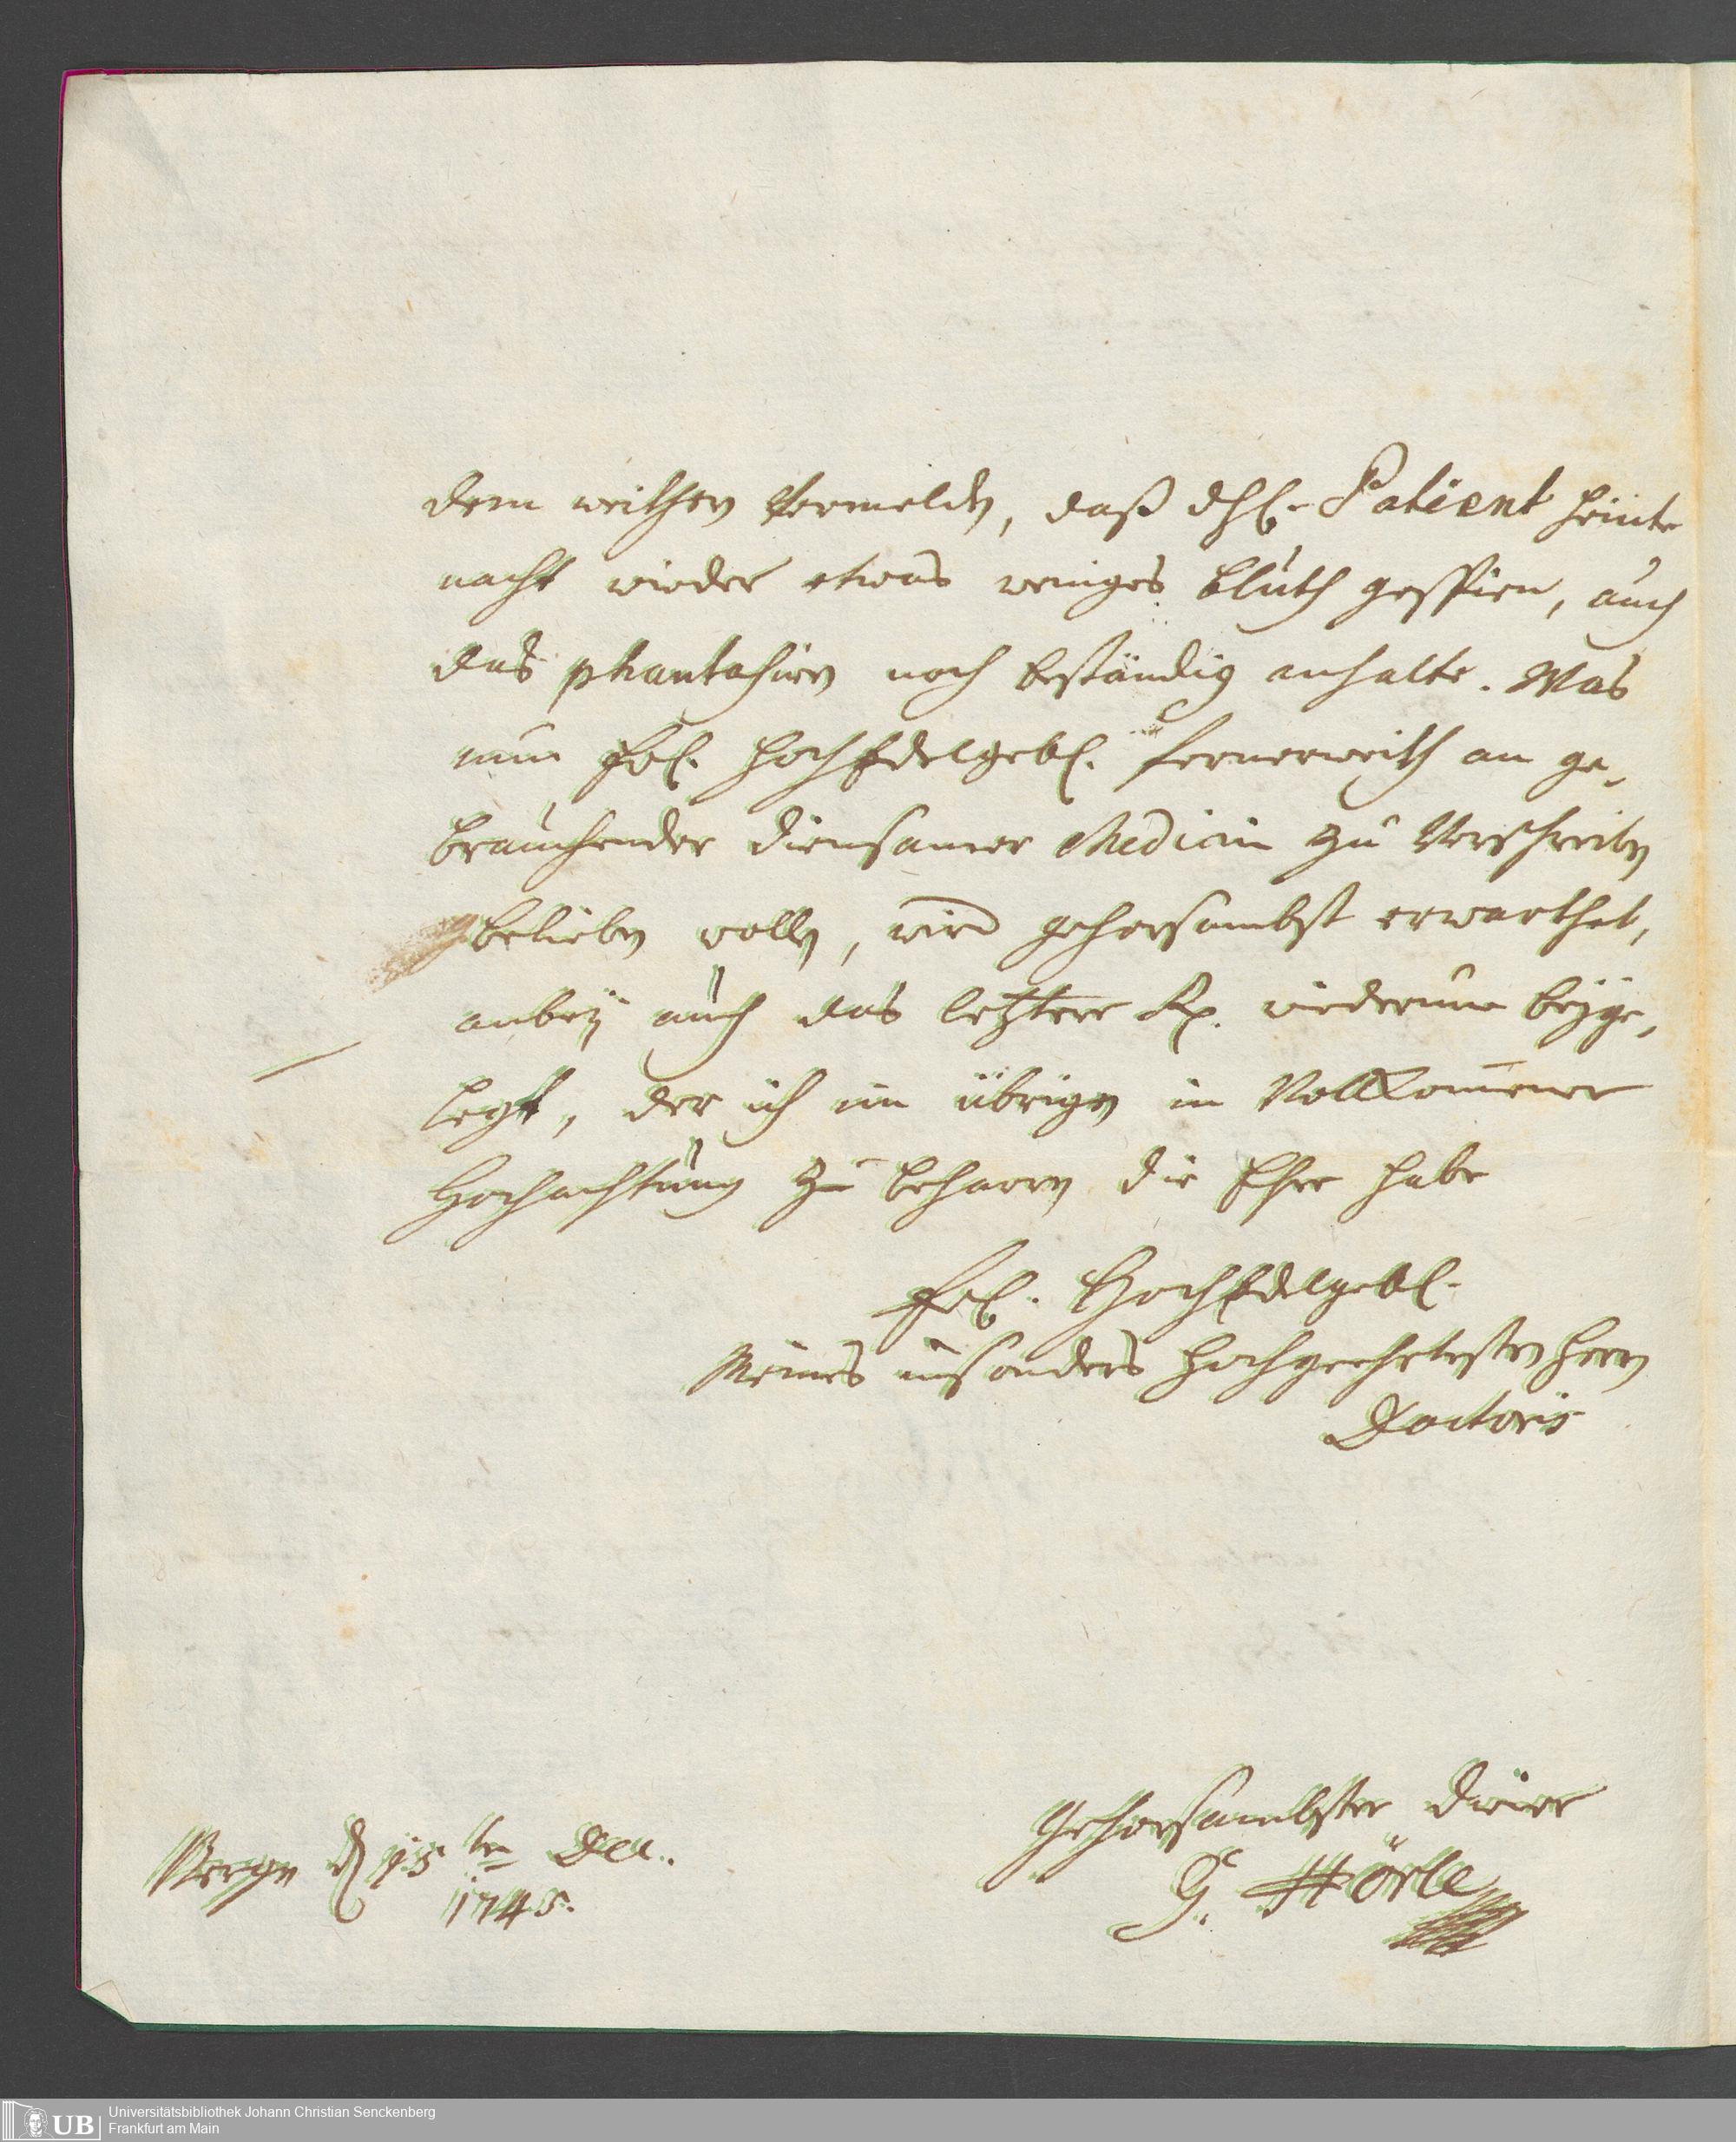 dem weithen Vermelden, daß dhl. Patient heinte
nacht wieder etwas weniges bluth gespien, auch
das phantasiren noch beständig anhalte. Was
nun Ew. HochEdelgebl. fernerweith an ge-
brauchender diensamer Medicin zu Verschreiben
belieben wollen, wird gehorsambst erwarthet,
anbey auch das letztere Rp. wiederum beyge-
legt, der ich im übrigen in Vollkommener
Hochachtung zu beharren die Ehre habe
Ew. HochEdelgebl.
Meines insonders hochgeehrtesten Herrn
Doctoris
gehorsambster Diener
G. Hörle
Bergen d 15ten Dec.
1745.
Universitätsbibliothek Johann Christian Senckenberg
Frankfurt am Main
UB